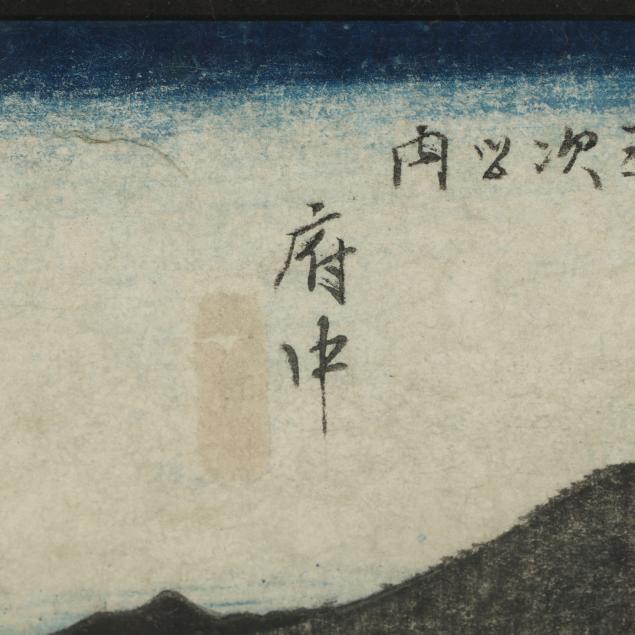 次之内
府中